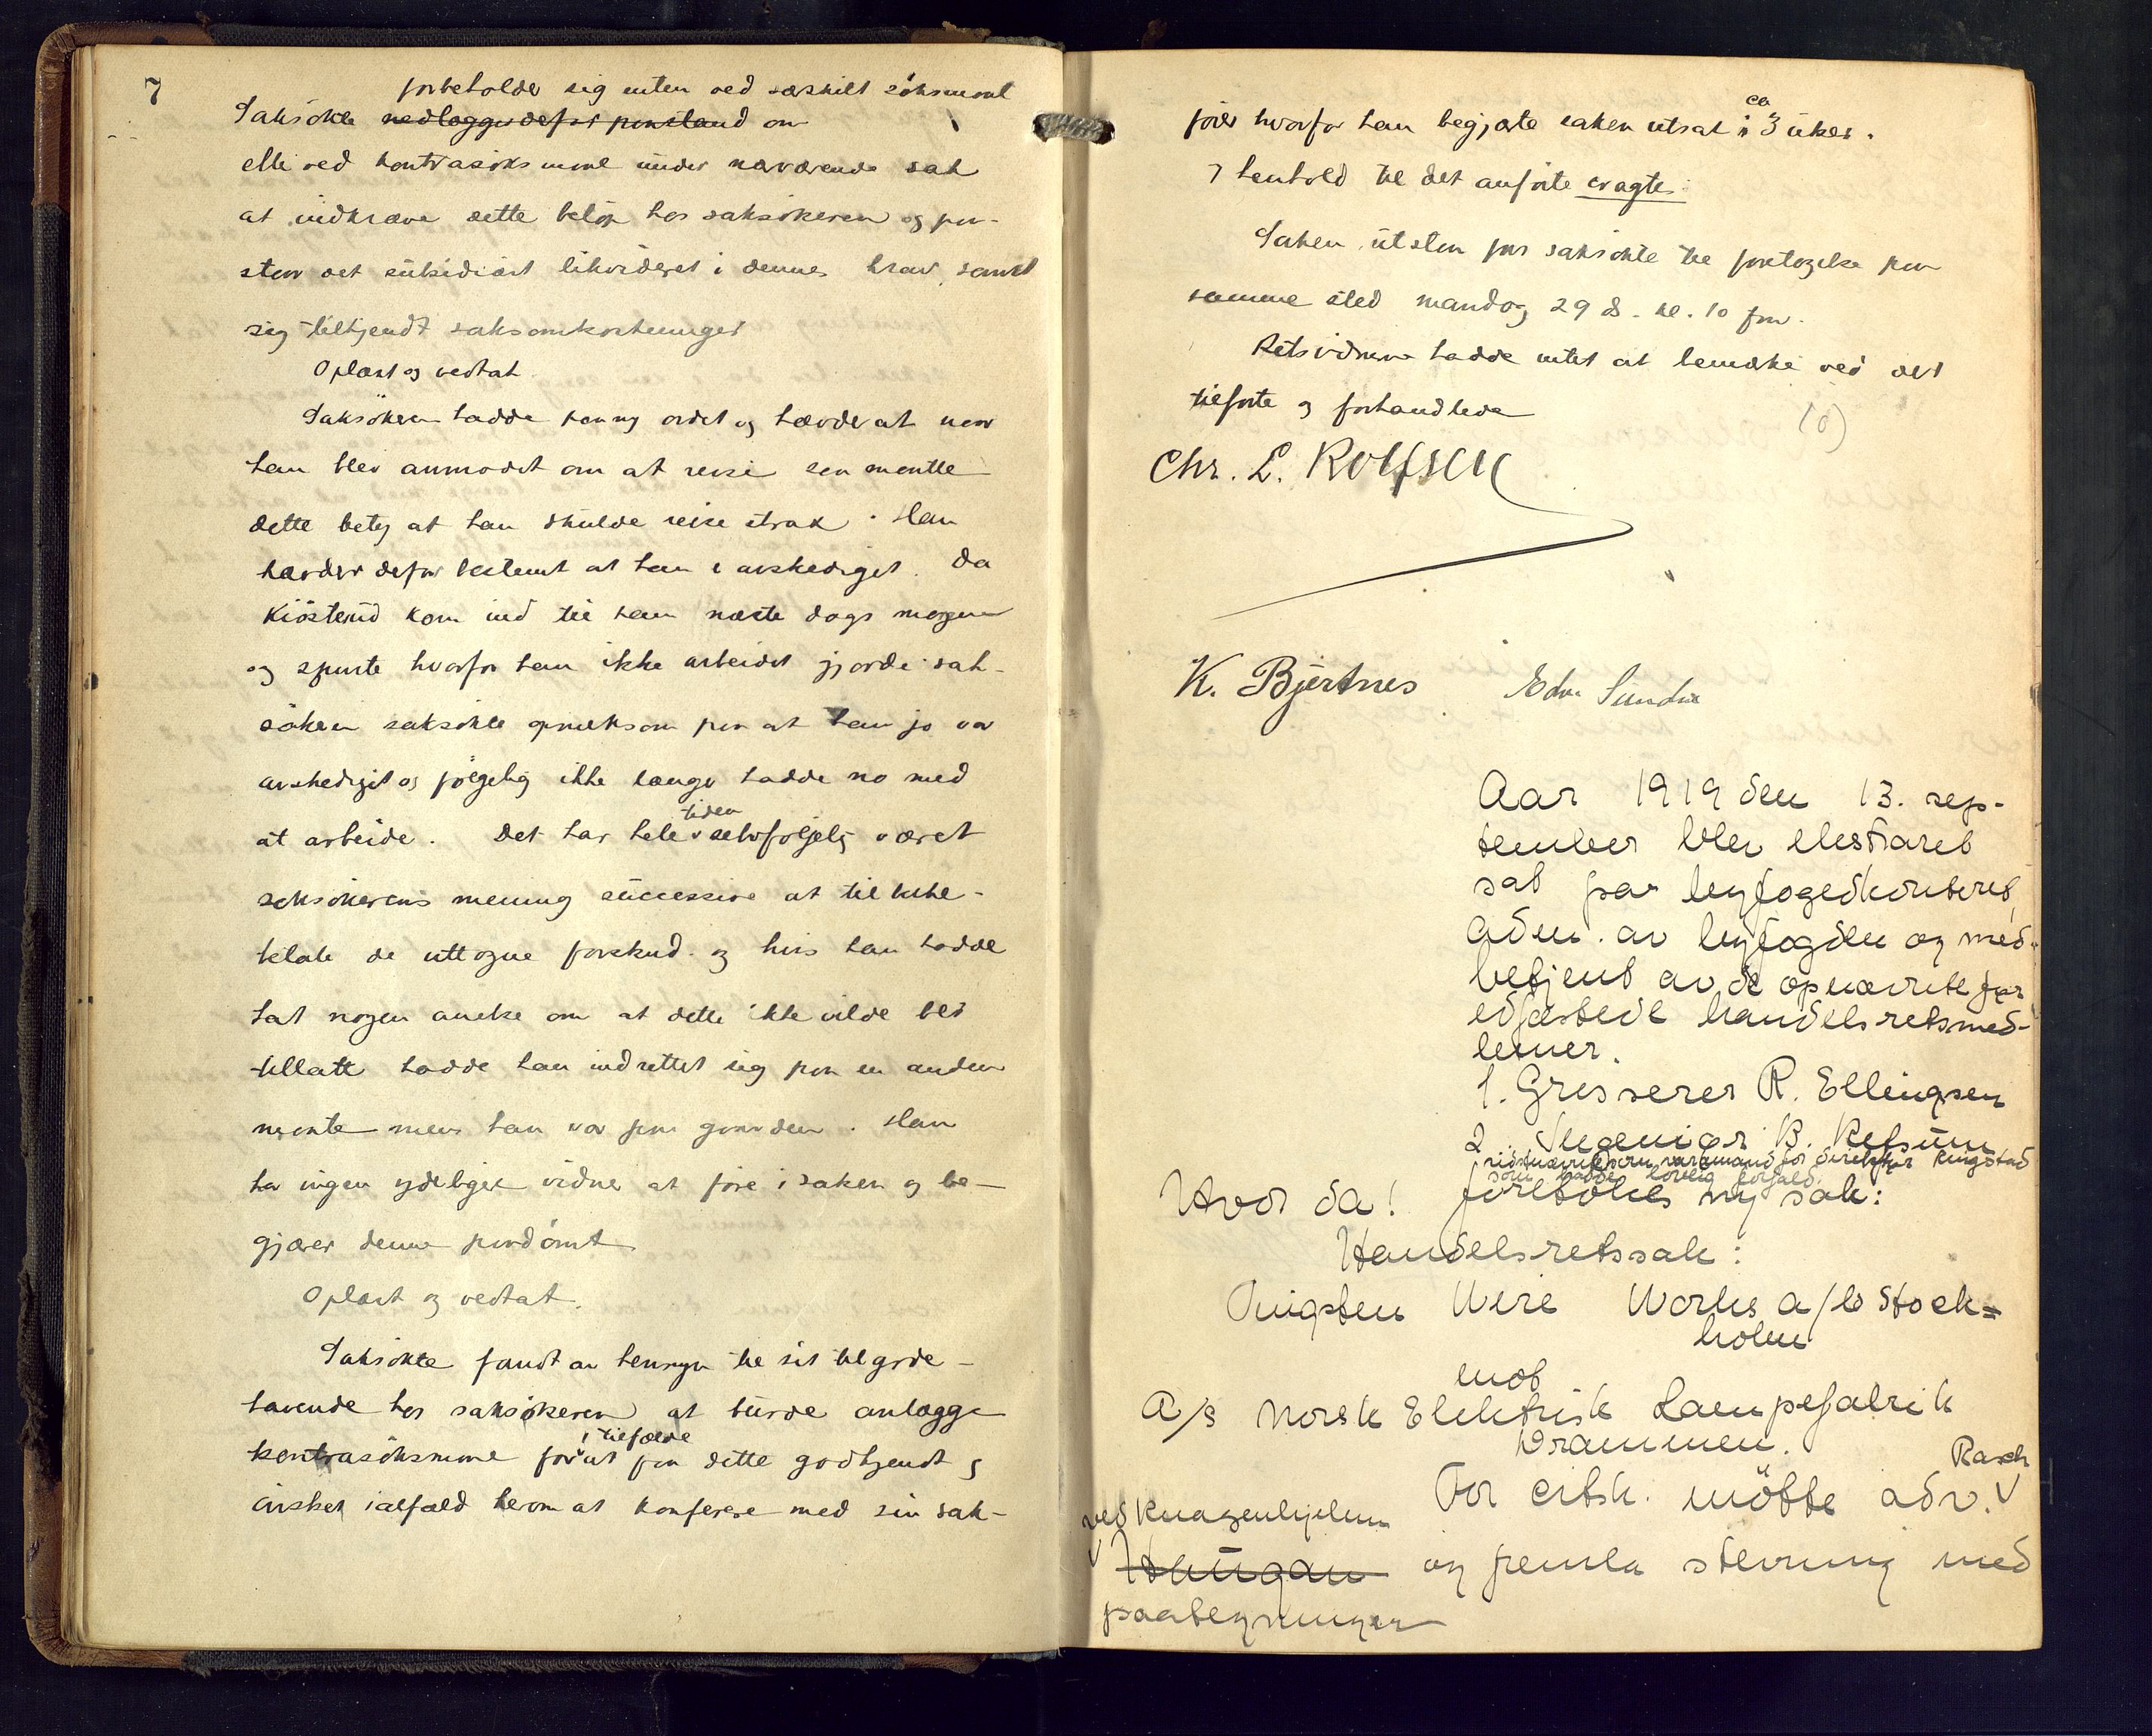 7
forbeholder sig enten ved særskilt söksmaal
Saksökte nedlægger derfor paastand om
eller ved kontrasöksmaal under nærværende sak
at indkræve dette belöp hos saksökeren og paa-
staar det subsidiært likvideret i dennes krav, samt
sig tilkjendt saksomkostninger
Oplæst og vedtat.
Saksökeren hadde paany ordet og hævder at naar
han blev anmodet om at reise saa mentte
dette betyr at han skulde reise straks. Han
hævder derfor bestemt at han er avskediget. Da
Kiösterud kom ind til ham næste dags morgen
og spurte hvorfor han ikke arbeidet gjorde sak-
sökeren saksökte opmerksom paa at han jo var
avskediget og fölgelig ikke længer hadde no med
at arbeide. Det har hele tiden selvfölgelig været
saksökerens mening successive at tilbake-
betale de uttagne forskud og hvis han hadde
hat nogen anelse om at dette ikke vilde bli
tillatt hadde han indrettet sig paa en anden
maate mens han var paa gaarden. Han
har ingen yderligere vidner at före i saken og be-
gjærer denne paadömt
Oplæst og vedtat.
Saksökte fandt av hensyn til sit tilgode-
havende hos saksökeren at burde anlægge
kontrasöksmaal for i tilfælde at faa dette godkjendt og
önsker ialfald herom at konferere med sin sak-
förer hvorfor han begjærte saken utsat i ca 3 uker.
I henhold til det anförte eragtes:
Saken utstaar for saksökte til foretagelse paa
samme sted mandag 29 ds. kl. 10 fm.
Retsvidnerne hadde intet at bemerke ved det
tilförte og forhandlede
(o)
Chr. L. Rolfsen
K. Bjertnes Edv. Sundre
Aar 1919 den 13. sep-
tember blev ekstraret
sat paa byfogedkontoret,
Adm. av byfogden og med-
betjent av de opnævnte før
edfæstede handelsretsmed-
lemer.
1. Grosserer R. Ellingsen
2. Ingeniør B. Refsum
sidstnævnte som varamand for direktør Ringstad
som hadde lovlig forfald.
Hvor da! foretokes ny sak:
Handelsretssak:
Tungsten Wire Works a/b Stock=
holm
mot
A/s Norsk Elektrisk Lampefabrik
Drammen.
For citsk. mötte adv. Rasch
ved Knagenhjelm
Haugan og fremla stevning med
paategninger